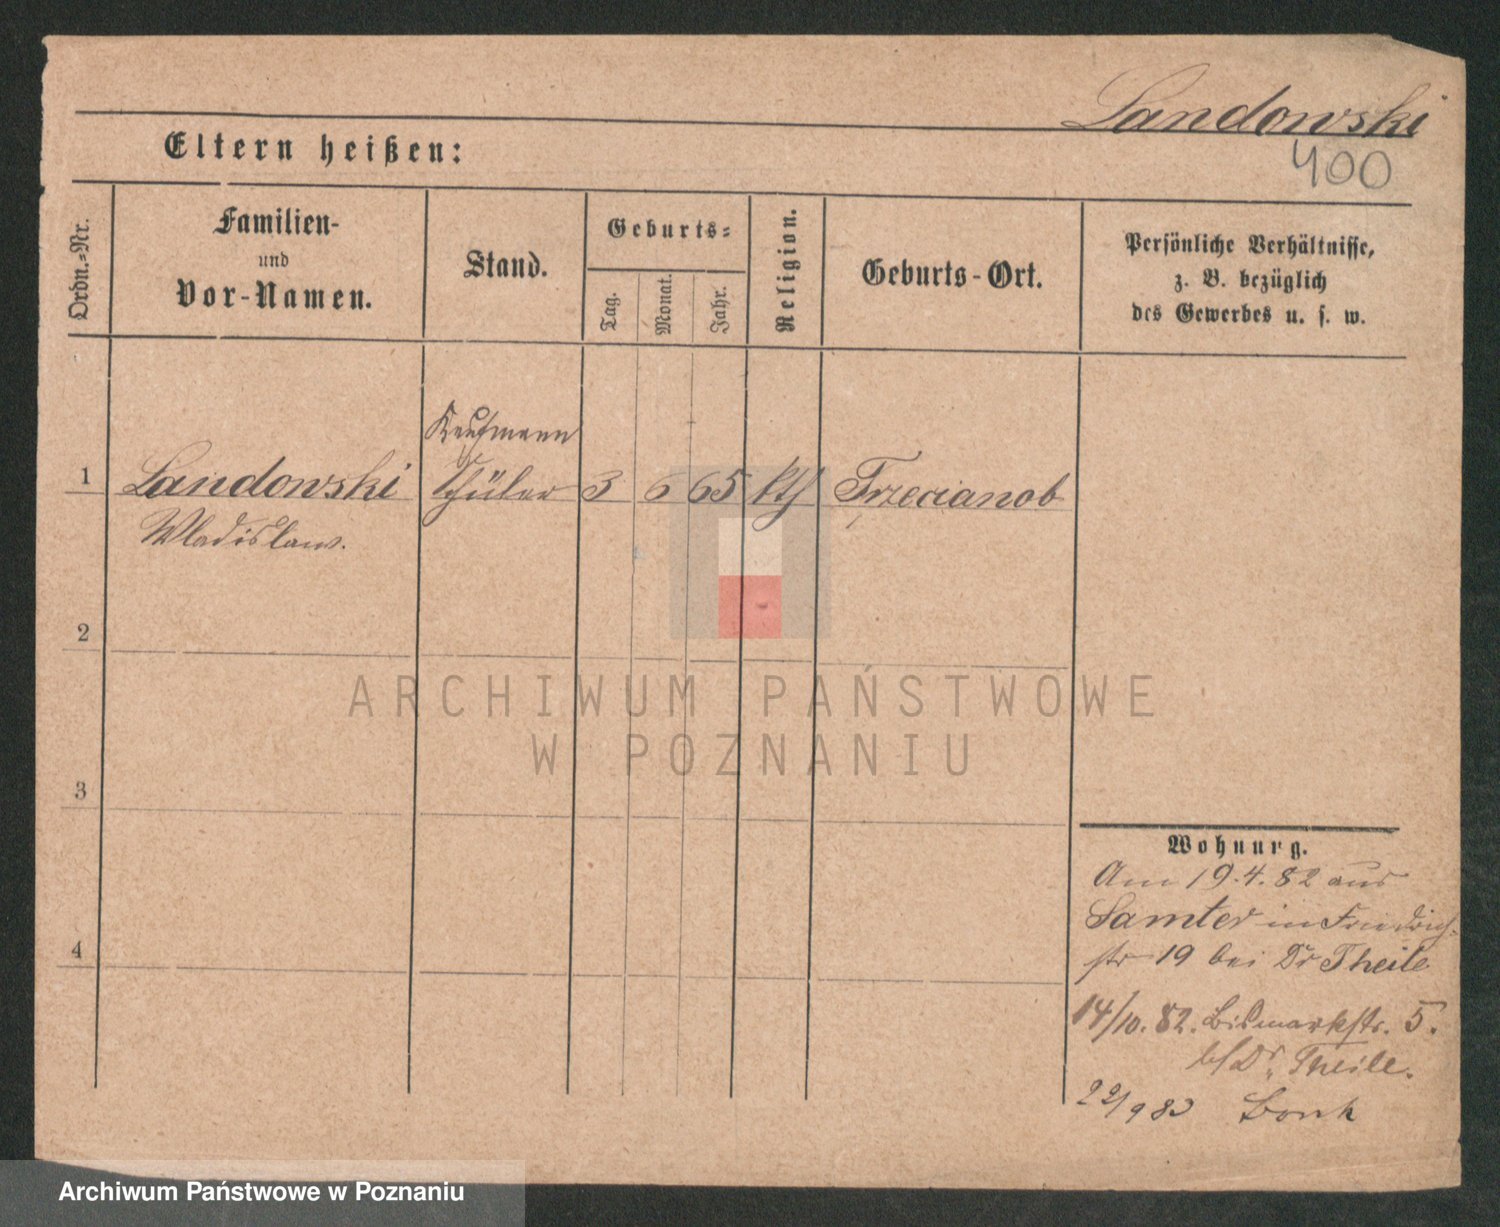 Landowski
400
Eltern heißen:
Ordn.-Nr.
Familien-
und
Vor-Namen.
Stand.
Geburts-
Tag.
Monat.
Jahr.
Religion.
Geburts-Ort.
Persönliche Verhältnisse,
z. B. bezüglich
des Gewerbes u. s. w.
Kaufmann
1 Landowski Schüler 3 6 65 kth Trzecianob
Wladislaus.
2
3
4
Wohnung.
Am 19.4.82 aus
Samter in Friedrich-
str 19 bei Dr Theile
14/10.82. Bismarkstr. 5.
b/ Dr. Theile.
22/9 83
ARCHIWUM PAŃSTWOWE
W POZNANIU
Archiwum Państwowe w Poznaniu